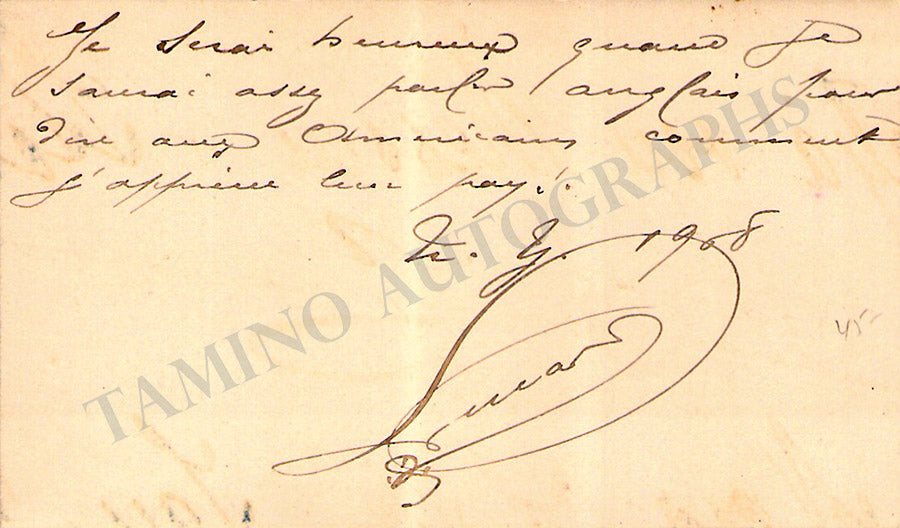 Je serai heureux quand je
saurai assez parler anglais pour
dire aux Américains comment
j'apprécie leur pays.
N. Y. 1908
Renard
45-
TAMINO AUTOGRAPHS